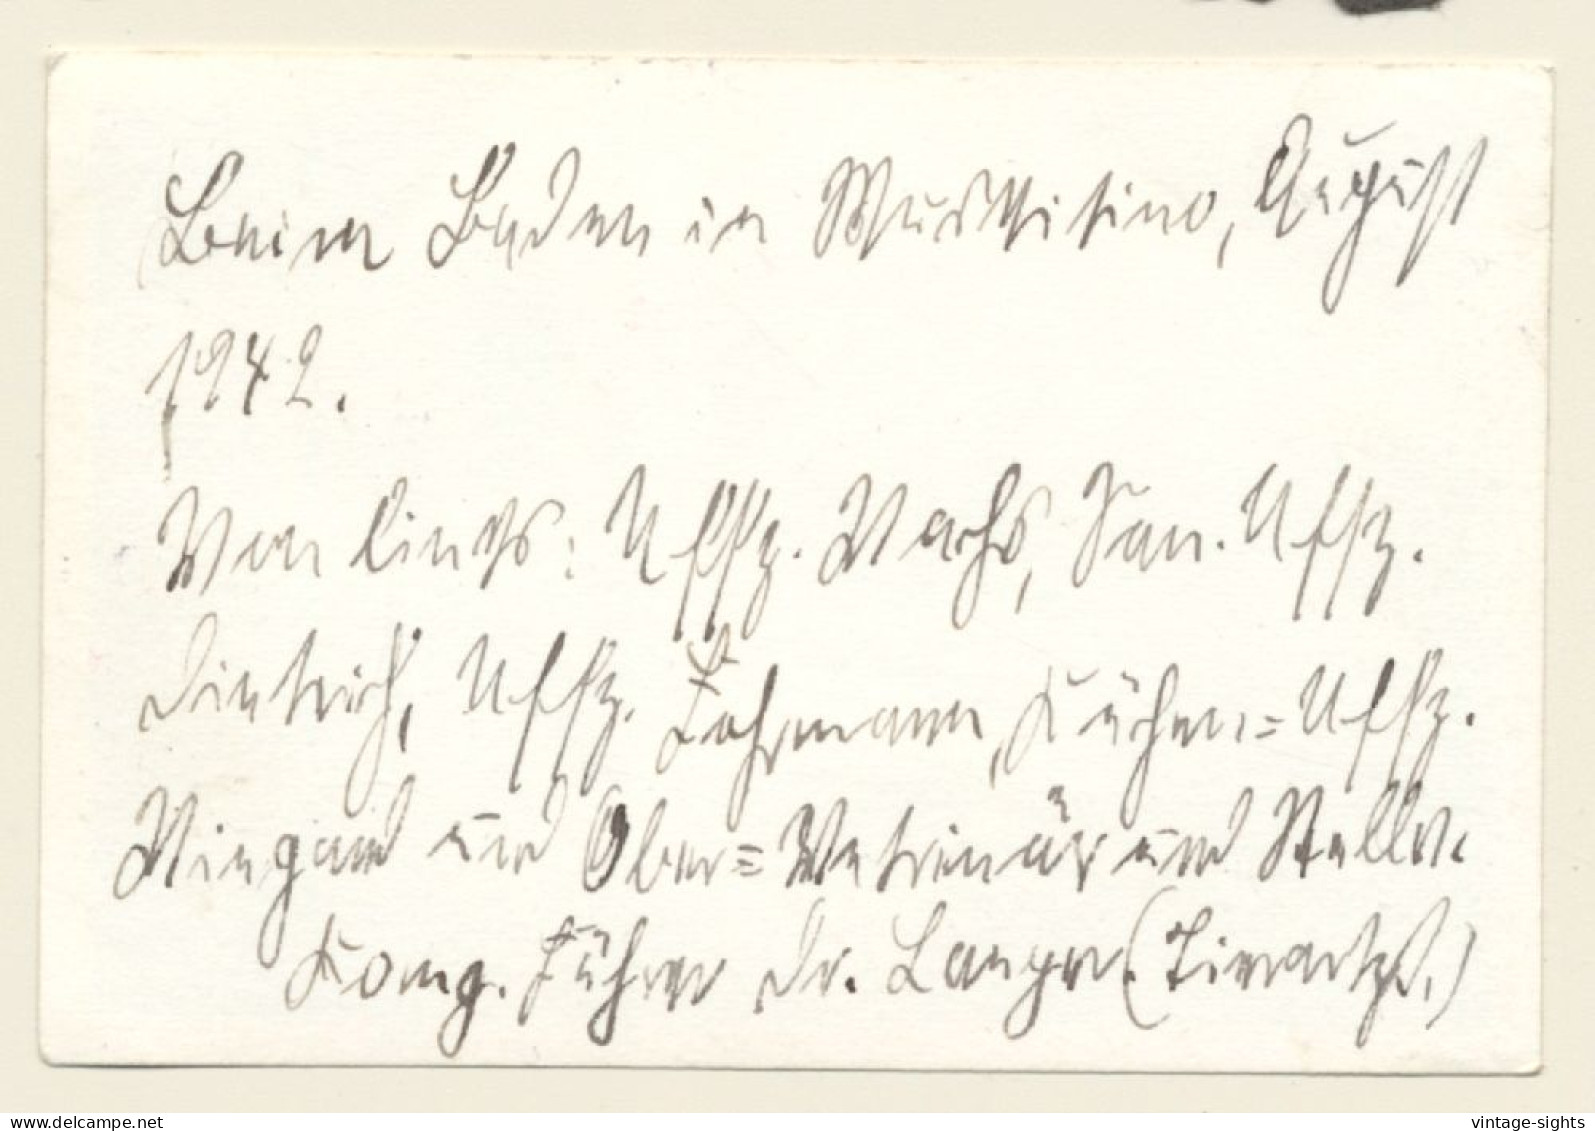 Beim Baden in Muschitino, August
1942.
Von links: Uffz. Wachs, San. Uffz.
Dietrich, Uffz. Fuhrmann, Küchen=Uffz.
Wiegand und Ober=Veterinär und Stellv.
Komp. Führer Dr. Langer (Tierarzt.)
delcampe.net
vintage-sights